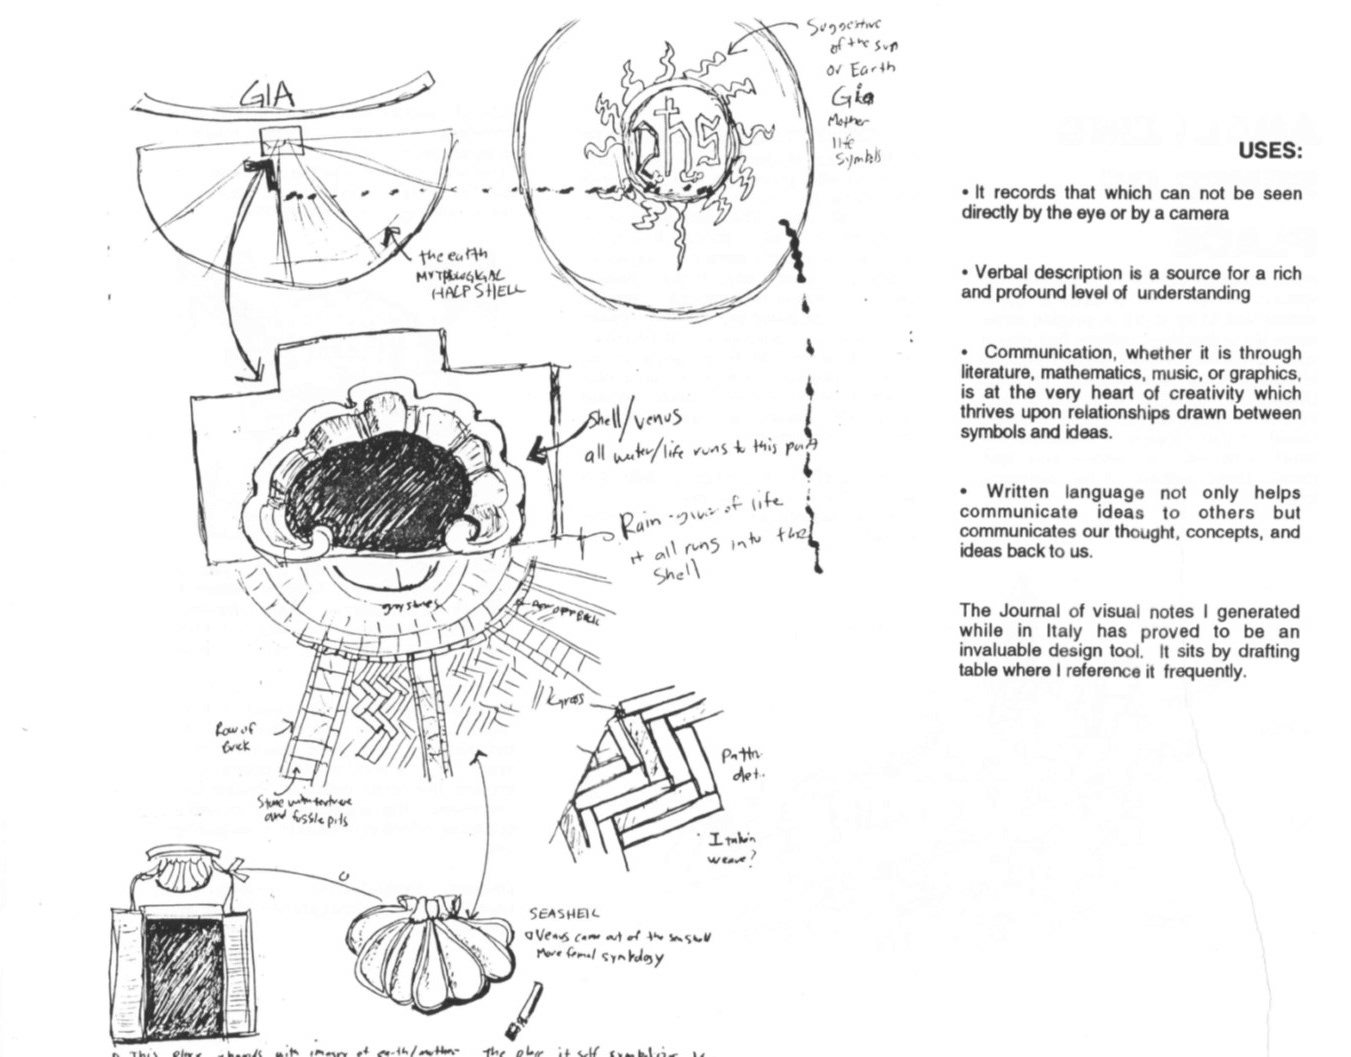 GIA
Suggestive
of the sun
or Earth
Gia
Mother
life
Symbols
ihs
the earth
MYTHOLOGICAL
HALF SHELL
Shell/venus
all water/life runs to this part
Rain - giver of life
it all runs into the
Shell
gray stones
Grass
Row of
Brick
Stone with texture
and fossle pits
Pattn.
det.
Italian
weave?
SEASHELL
Venus came out of the sea shell
More femal symbology
This place abounds with images of earth/mother The place it self symbolizes
USES:
• It records that which can not be seen
directly by the eye or by a camera
• Verbal description is a source for a rich
and profound level of understanding
• Communication, whether it is through
literature, mathematics, music, or graphics,
is at the very heart of creativity which
thrives upon relationships drawn between
symbols and ideas.
• Written language not only helps
communicate ideas to others but
communicates our thought, concepts, and
ideas back to us.
The Journal of visual notes I generated
while in Italy has proved to be an
invaluable design tool. It sits by drafting
table where I reference it frequently.